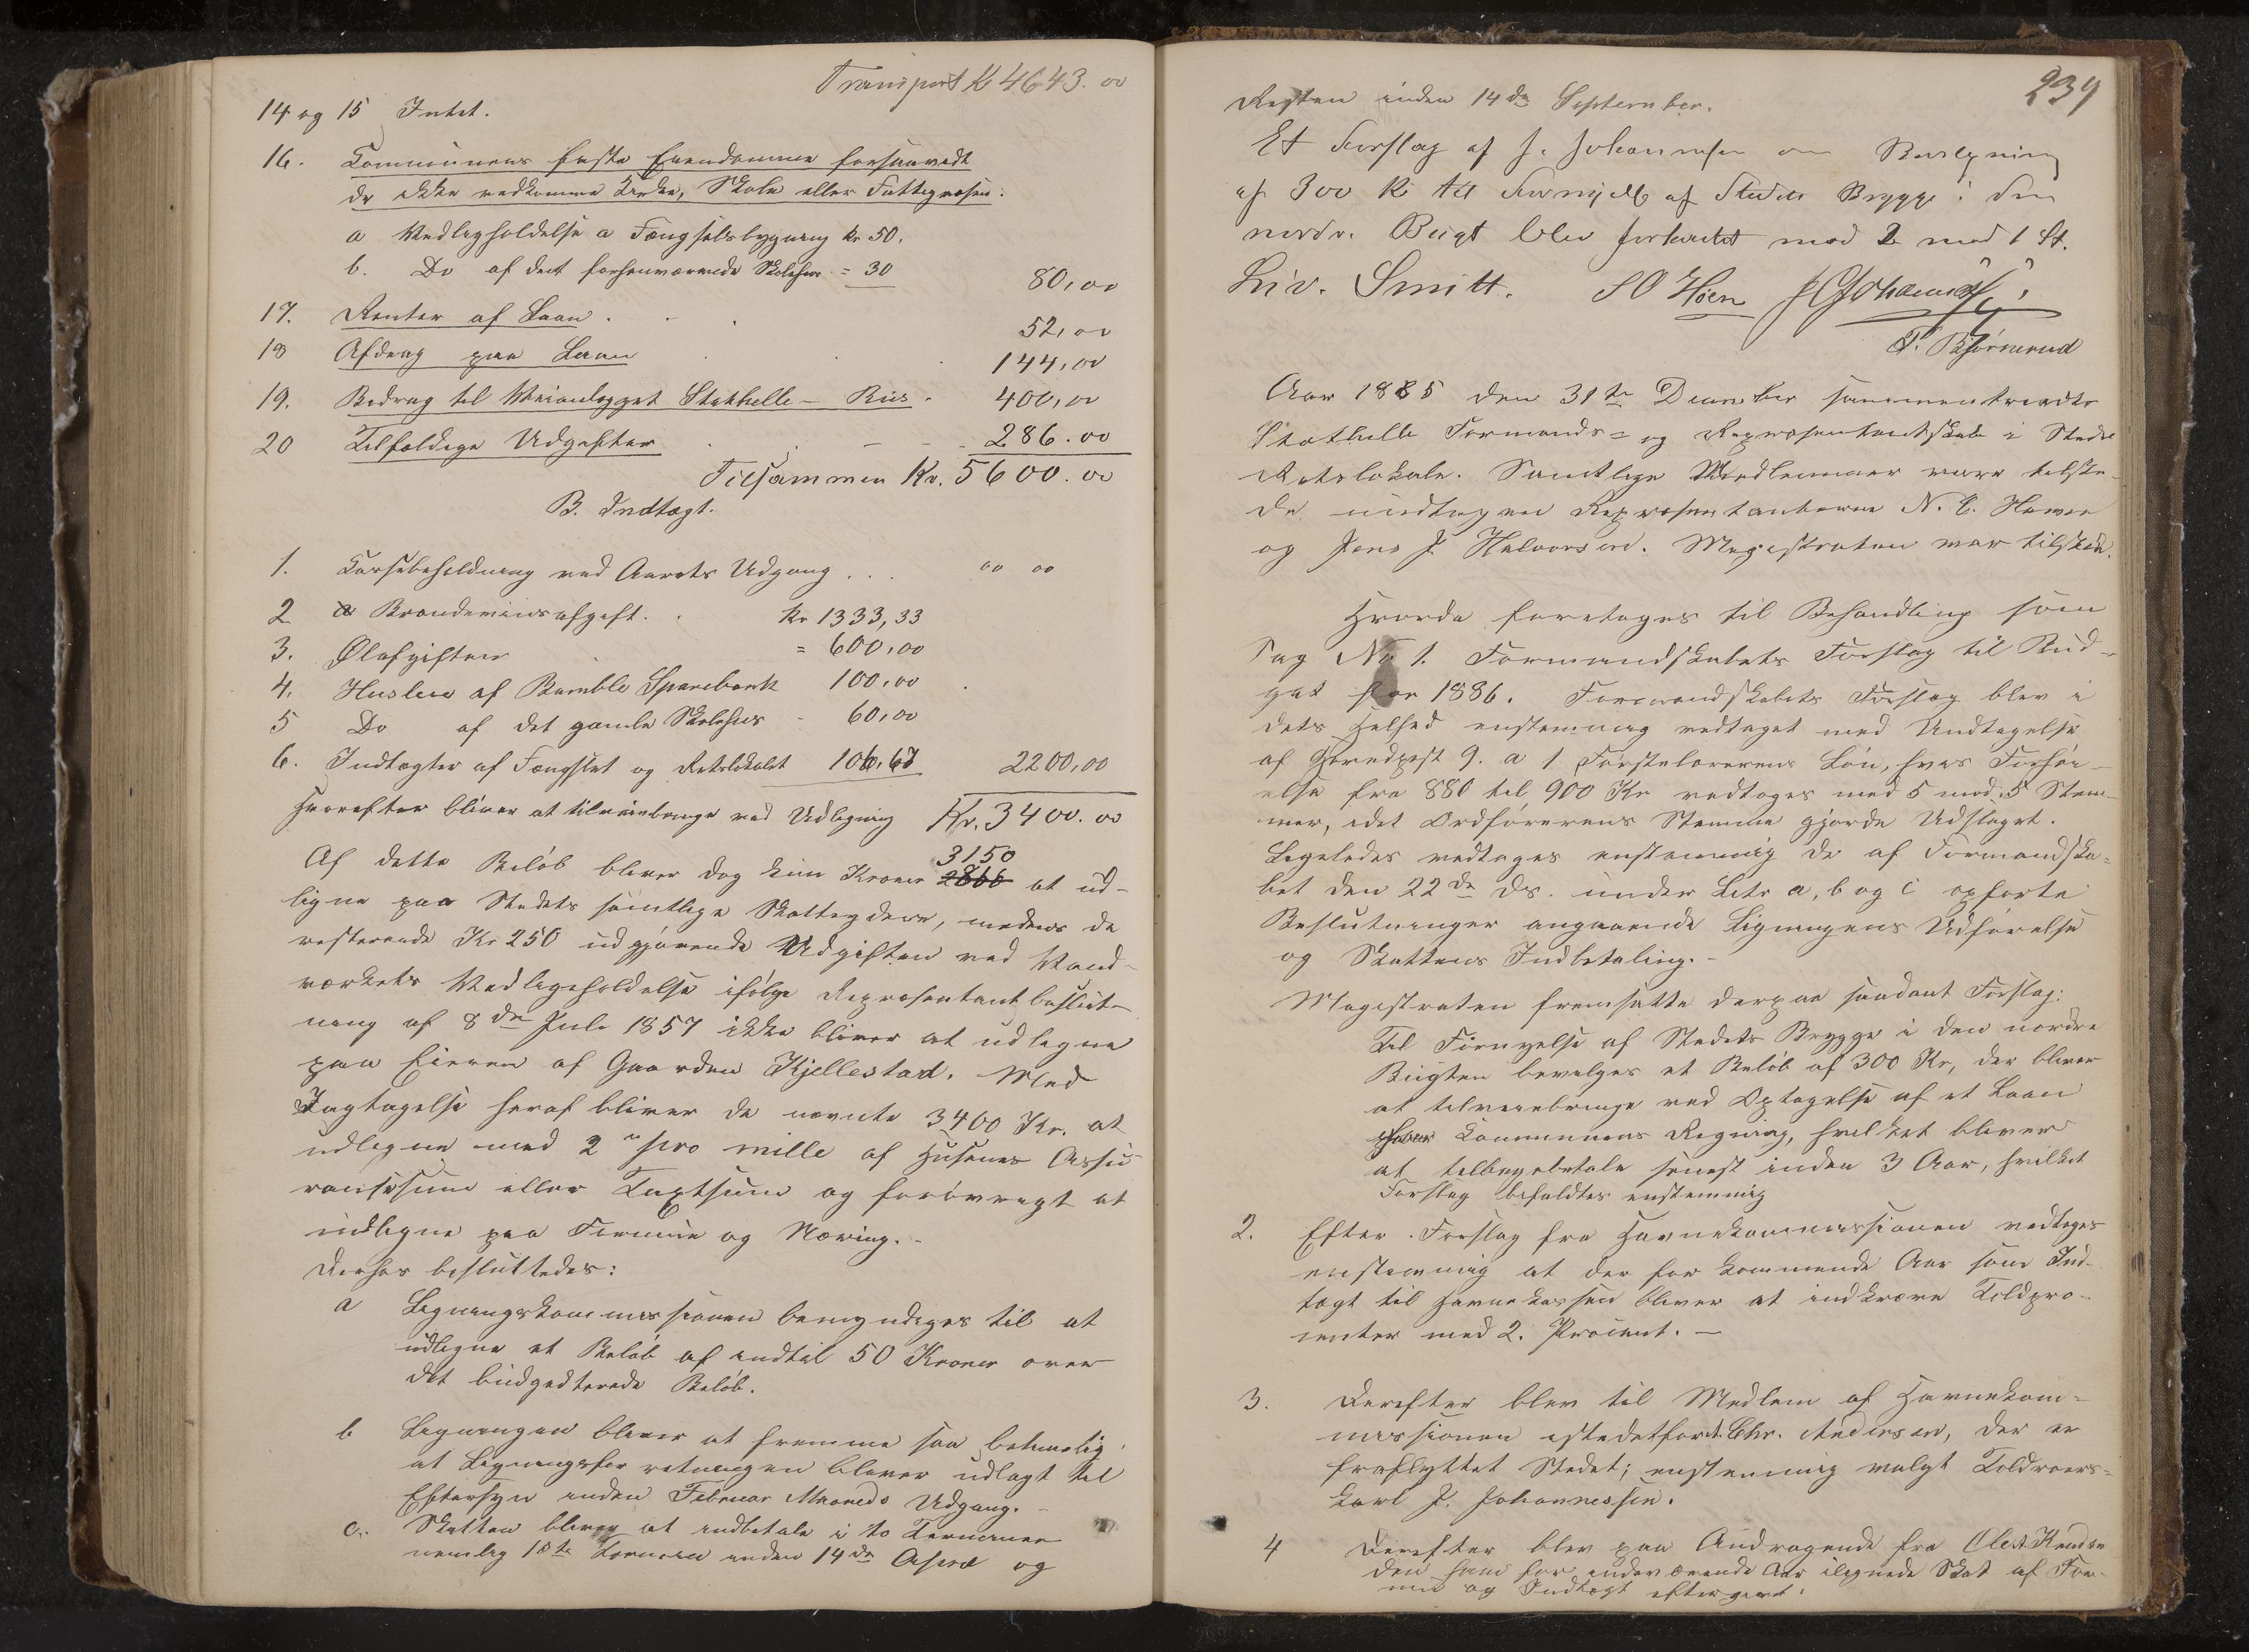 Transport Kr 4643.00
14 og 15 Intet.
16. Communens faste Eiendomme forsaavidt
de ikke vedkomme Kirke, Skole eller Fattigvæsen:
a Vedligholdelse a Fængselsbygning Kr 50.
b. Do af det forhenværende Skolehus = 30 80,00
17. Renter af Laan . . . 52,00
18 Afdrag paa Laan . . 144,00
19. Bidrag til Veianlægget Stathelle - Riis . 400,00
20 Tilfældige Udgifter . . - - 286.00
Tilsammen Kr. 5600.00
B. Indtægt.
1. Kassebeholdning ved Aarets Udgang . . . 00 00
2 a Brændevinsafgift. . Kr 1333,33
3. Ølafgiften = 600,00
4. Husleie af Bamble Sparebank 100,00
5 Do af det gamle Skolehus - 60,00
6. Indtægter af Fængslet og Retslokalet 106,67 2200,00
Hvorefter bliver at tilveiebringe ved Udligning Kr. 3400.00
3150
Af dette Beløb bliver dog kun Kroner 2866 at ud-
ligne paa Stedets samtlige Skatteydere, medens de
resterende Kr 250 udgjørende Udgiften ved Vand-
værkets Vedligeholdelse ifølge Repræsentantbeslut-
ning af 8de Juli 1857 ikke bliver at udligne
paa Eieren af Gaarden Kjellestad. Med
Iagttagelse heraf bliver de nævnte 3400 Kr. at
udligne med 2 pro mille af Husenes Assu-
rancesum eller Taxtsum og forøvrigt at
udligne paa Formue og Næring. -
Derhos besluttedes:
a Ligningskommissionen bemyndiges til at
udligne et Beløb af indtil 50 Kroner over
det budgedterede Beløb.
b Ligningen bliver at fremme saa betimelig,
at Ligningsforretningen bliver udlagt til
Eftersyn inden Februar Maaneds Udgang. -
c. Skatten bliver at indbetale i to Terminer
nemlig 1ste Termin inden 14de April og
239
Resten inden 14de September.
Et Forslag af J. Johannesen om Bevilgning
af 300 Kr til Fornyelse af Stedets Brygge i den
nordr. Bugt blev forkastet mod 2 mod 1 St.
Liv. Smitt. S O Høen J Johannesen
P. Bjørnerud
Aar 1885 den 31te December sammentraadte
Stathelle Formands= og Repræsentantskab i Stedets
Retslokale. Samtlige Medlemmer vare tilste-
de undtagen Repræsentanterne N. C. Hansen
og Jens J. Halvorsen. Magistraten var tilstede.
Hvorda foretoges til Behandling som
Sag No 1. Formandskabets Forslag til Bud-
get for 1886. Formandskabets Forslag blev i
dets Helhed enstemmig vedtaget med Undtagelse
af Hovedpost 9. a 1 Førstelærerens Løn, hvis Forhøi-
else fra 880 til 900 Kr vedtoges med 5 mod 5 Stem-
mer, idet Ordførerens Stemme gjorde Udslaget.
Ligeledes vedtoges enstemmig de af Formandska-
bet den 22de ds. under Litr a, b og c opførte
Beslutninger angaaende Ligningens Udførelse
og Skattens Indbetaling. -
Magistraten fremsatte derpaa saadant Forslag:
Til Fornyelse af Stedets Brygge i den nordre
Bugten bevilges et Beløb af 300 Kr, der bliver
at tilveiebringe ved Optagelse af et Laan
for Kommunens Regning, hvilket bliver
at tilbagebetale senest inden 3 Aar, hvilket
Forslag bifaldtes enstemmig
2. Efter Forslag fra Havnekommissionen vedtoges
enstemmig at der for kommende Aar som Ind-
tægt til Havnekassen bliver at indkræve Toldpro-
center med 2. Procent. -
3. Derefter blev til Medlem af Havnekom-
missionen istedetfor Chr. Andersen, der er
fraflyttet Stedet; enstemmig valgt Toldroers-
karl J. Johannessen.
4 Derefter blev paa Andragende fra Ole A. Knudsen
den ham for indeværende Aar ilignede Skat af For-
mue og Indtægt eftergivet.